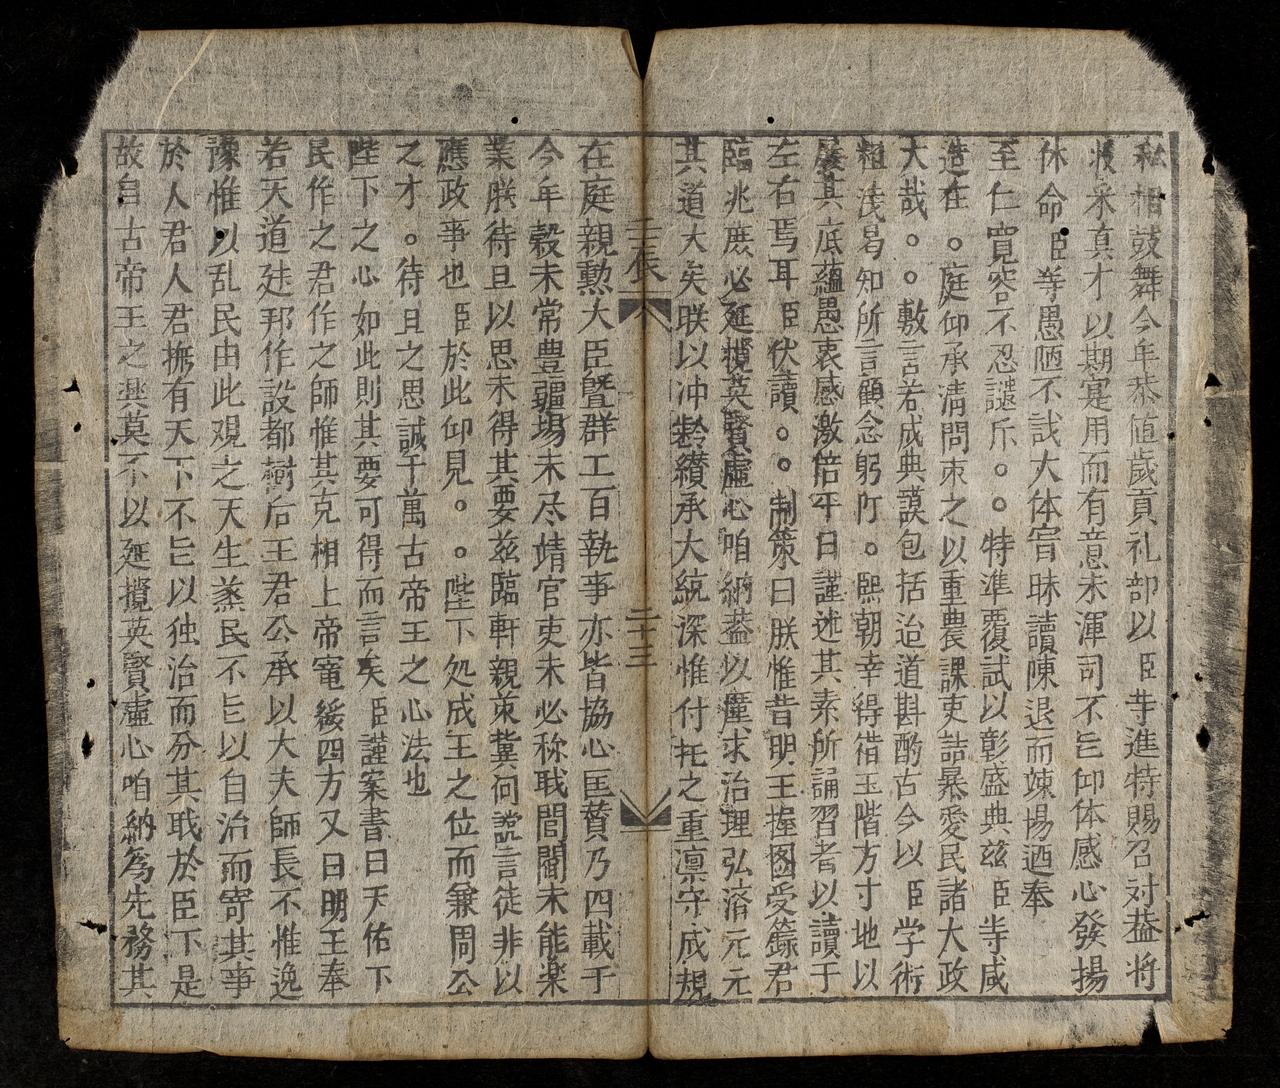 私相鼓舞今年恭值歲貢礼部以臣等進特賜召对盖将
收采真才以期寔用而有意未渾司不㠯仰体感心發揚
休命臣等愚陋不諳大体㝐昧讀陳退而竦惕迺奉
至仁寬容不忍譴斥。。特準覆試以彰盛典兹臣等咸
造在。庭仰承清問束之以重農課吏詰暴愛民諸大政
大哉。。敷言若成典謨包括治道斟酌古今以臣学術
粗浅曷知所言顧念躬阼。熙朝幸得借玉階方寸地以
展其底蘊愚衷感激倍平日謹述其素所誦習者以讀于
左右焉耳臣伏讀。。制策曰朕惟昔明王握图受籙君
臨兆庶必延攬英賢虚心咱納盖以廣求治理弘濟元元
其道大矣朕以冲齡纘承大統深惟付托之重凛守成規
王辰
二十三
在庭親勲大臣暨群工百執事亦皆協心匡賛乃四載于
今年穀未常豊疆場未尽靖官吏未必称戝閭閻未能楽
業朕待旦以思未得其要兹臨軒親策冀何讜言徒非以
應政事也臣於此仰見。。陛下处成王之位而兼周公
之才。待且之思誠千萬古帝王之心法也
陛下之心如此則其要可得而言矣臣謹案書曰天佑下
民作之君作之師惟其克相上帝寵綏四方又曰明王奉
若天道建邦作設都樹后王君公承以大夫師長不惟逸
豫惟以乱民由此观之天生蒸民不㠯以自治而寄其事
於人君人君撫有天下不㠯以独治而分其戝於臣下是
故自古帝王之興莫不以延攬英賢虚心咱納為先務其